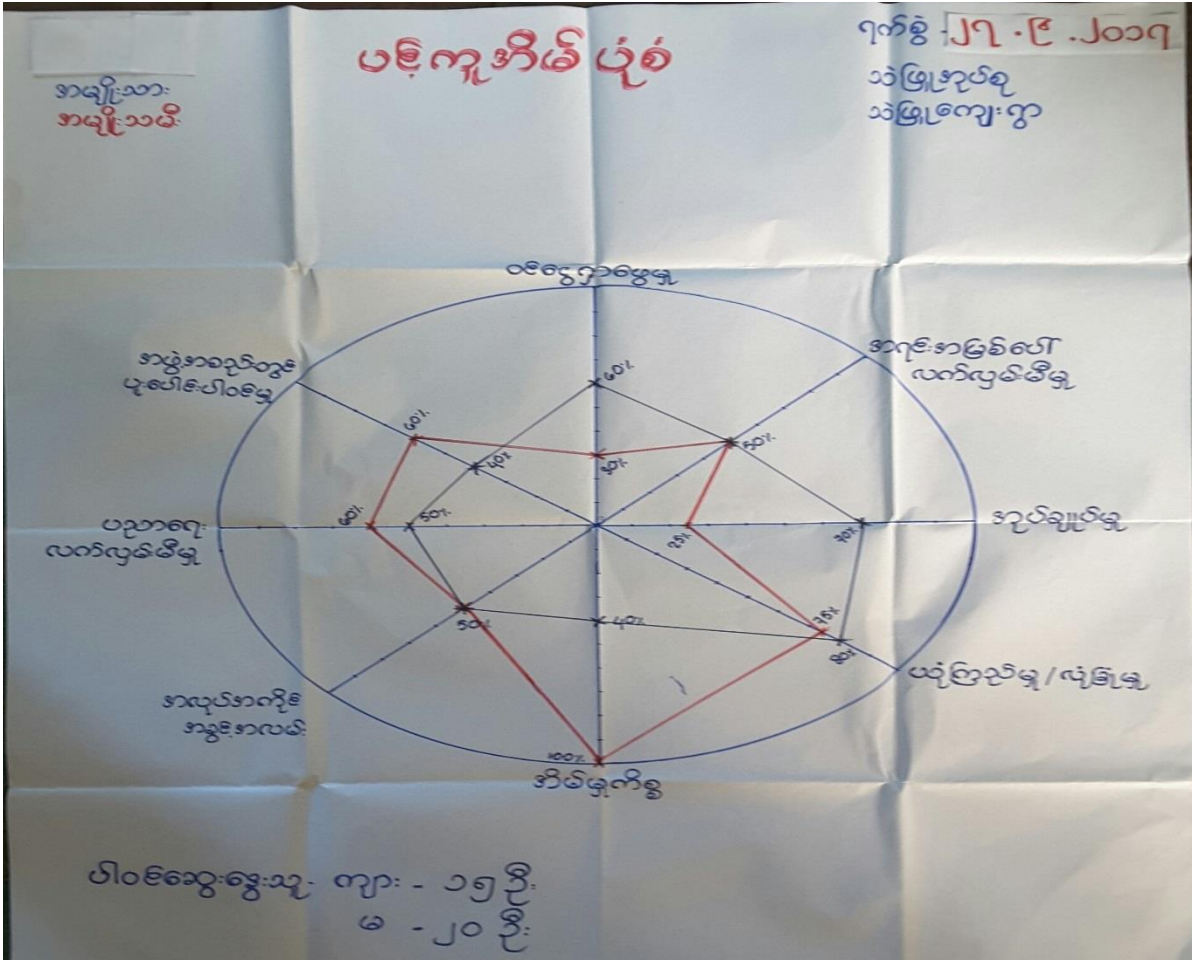 ပင့်ကူအိမ်ပုံစံ
ရက်စွဲ - ၂၇.၉.၂၀၁၇
သဲဖြူအုပ်စု
သဲဖြူကျေးရွာ
အမျိုးသား
အမျိုးသမီး
ဝင်ငွေရှာဖွေမှု
အရင်းအမြစ်ပေါ်
လက်လှမ်းမီမှု
အုပ်ချုပ်မှု
ယုံကြည်မှု / လုံခြုံမှု
အိမ်မှုကိစ္စ
အလုပ်အကိုင်
အခွင့်အလမ်း
ပညာရေး
လက်လှမ်းမီမှု
အဖွဲ့အစည်းတွင်
ပူးပေါင်းပါဝင်မှု
60%
30%
50%
70%
25%
75%
80%
40%
100%
50%
50%
60%
40%
60%
ပါဝင်ဆွေးနွေးသူ - ကျား - ၁၅ ဦး
မ - ၂၀ ဦး